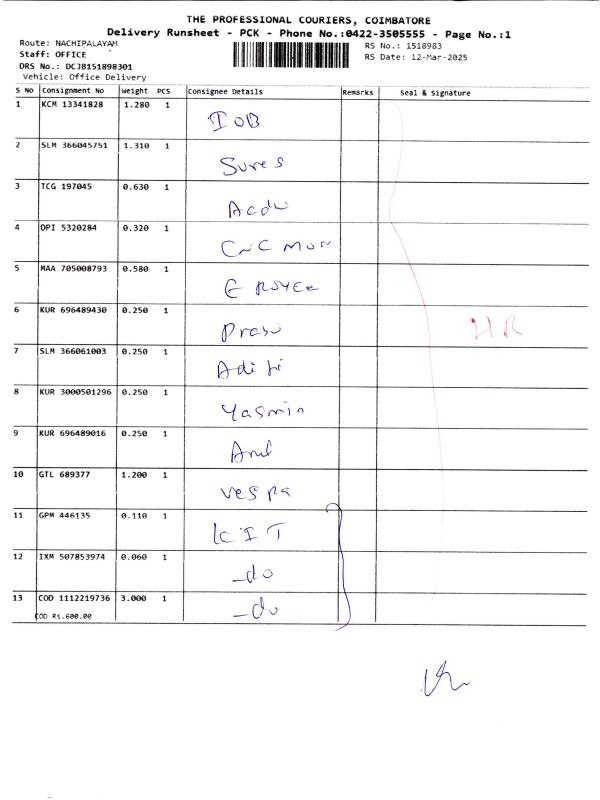 THE PROFESSIONAL COURIERS, COIMBATORE
Delivery Runsheet - PCK - Phone No.:0422-3505555 - Page No.:1
Route: NACHIPALAYAM
Staff: OFFICE
DRS No.: DCJB151898301
Vehicle: Office Delivery
RS No.: 1518983
RS Date: 12-Mar-2025
S No Consignment No Weight PCS Consignee Details Remarks Seal & Signature
1 KCM 13341828 1.280 1 IOB
2 SLM 366045751 1.310 1 Sures
3 TCG 197045 0.630 1
4 DPI 5320284 0.320 1 CNC
5 MAA 705008793 0.580 1
6 KUR 696489430 0.250 1
HR
7 SLM 366061003 0.250 1 Aditi
8 KUR 3000501296 0.250 1 Yasmin
9 KUR 696489016 0.250 1
10 GTL 689377 1.200 1 vespa
11 GPM 446135 0.110 1 KIT
12 IXM 507853974 0.060 1 -do
13 COD 1112219736 3.000 1 -do
COD RS.600.00